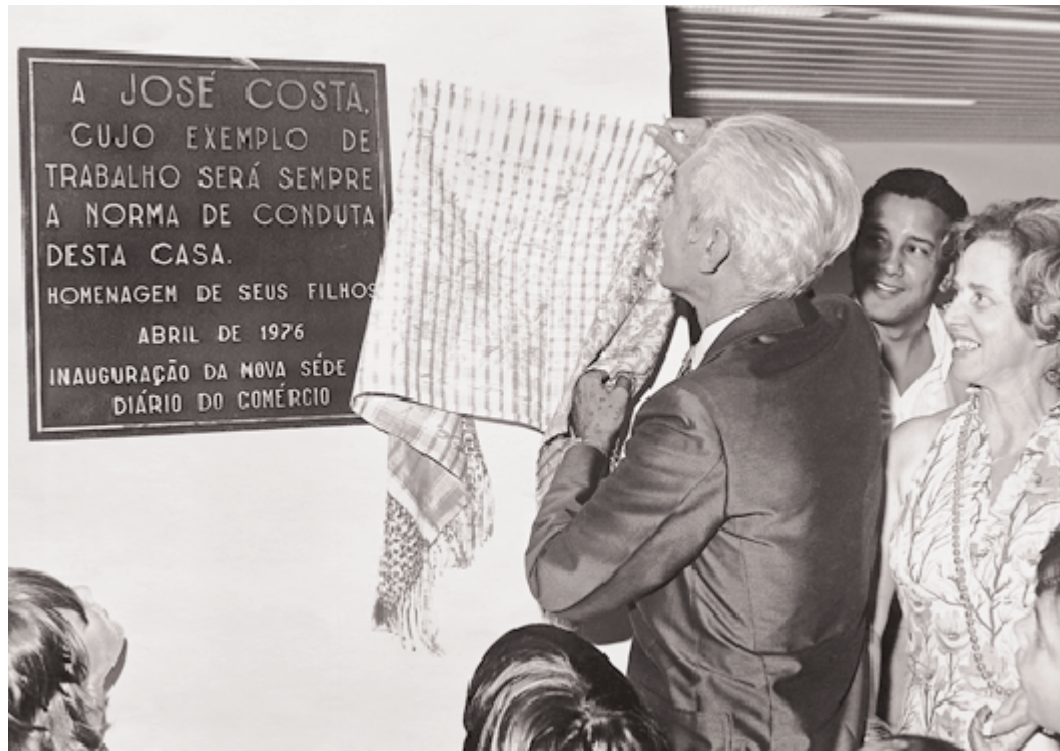 A JOSÉ COSTA,
CUJO EXEMPLO DE
TRABALHO SERÁ SEMPRE
A NORMA DE CONDUTA
DESTA CASA.
HOMENAGEM DE SEUS FILHOS
ABRIL DE 1976
INAUGURAÇÃO DA NOVA SÉDE
DIÁRIO DO COMÉRCIO